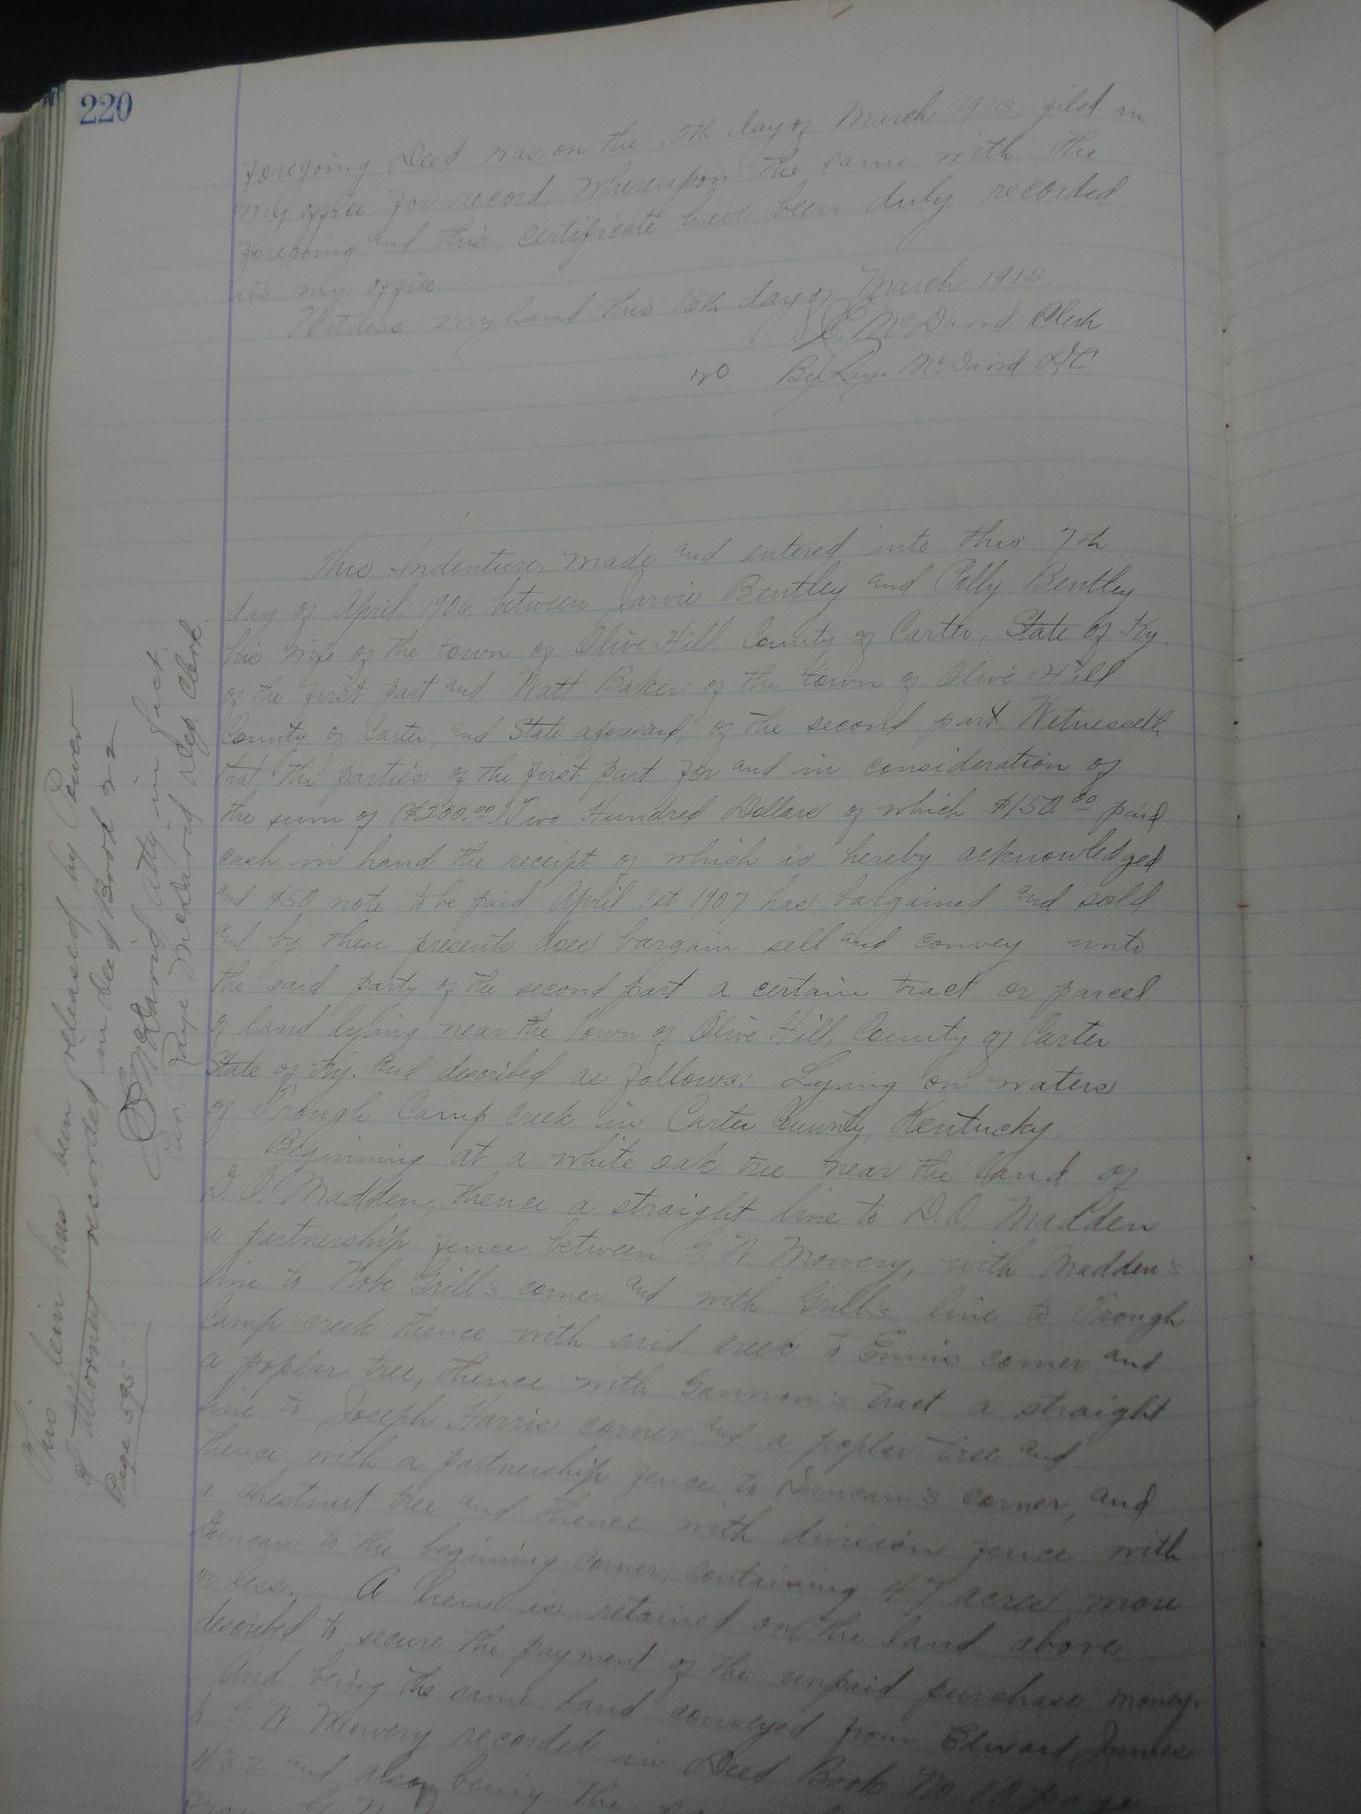 220
foregoing Deed was on the 15th day of March 1915, filed in
my office for record, whereupon the same with the
foregoing and this certificate have been duly recorded
in my office.
Witness my hand this 16th day of March 1915.
McDavid Clerk
By McDavid D.C.
This Indenture, made and entered into this 7th
day of April, 1906 between Jarvie Bentley and Polly Bentley
his wife of the town of Olive Hill, County of Carter, State of Ky.
of the first part and Watt Baker of the town of Olive Hill
County of Carter, and State aforesaid, of the second part, Witnesseth
that the parties of the first part for and in consideration of
the sum of ($200.00) Two Hundred Dollars of which $150.00 paid
cash in hand the receipt of which is hereby acknowledged
and $50 note to be paid April 1st 1907 has bargained and sold
and by these presents does bargain sell and convey unto
the said party of the second part a certain tract or parcel
of land lying near the Town of Olive Hill, County of Carter
State of Ky. and described as follows: Lying on waters
of Trough Camp Creek in Carter County, Kentucky.
Beginning at a white oak tree near the land of
D.O. Madden, thence a straight line to D.O. Madden
a partnership fence between G. W. Mowery, with Madden's
line to Hobe Grill's corner and with Grill's line to Trough
Camp creek thence with said creek to Ennis corner and
a poplar tree, thence with Gannon's tract a straight
line to Joseph Harris corner and a poplar tree and
thence with a partnership fence to Duncan's corner, and
a chestnut tree and thence with division fence with
Duncan to the begining corner, containing 47 acres more
or less. A lien is retained on the land above
described to secure the payment of the unpaid purchase money.
And being the same land conveyed from Edward James
to G. W. Mowery recorded in Deed Book No. 10 page
432 and also being the
from G. W.
This lein has been released by Power
of attorney recorded in deed Book 22
Page 595
McDavid atty in fact
Per Faye McDavid Dep. Clerk